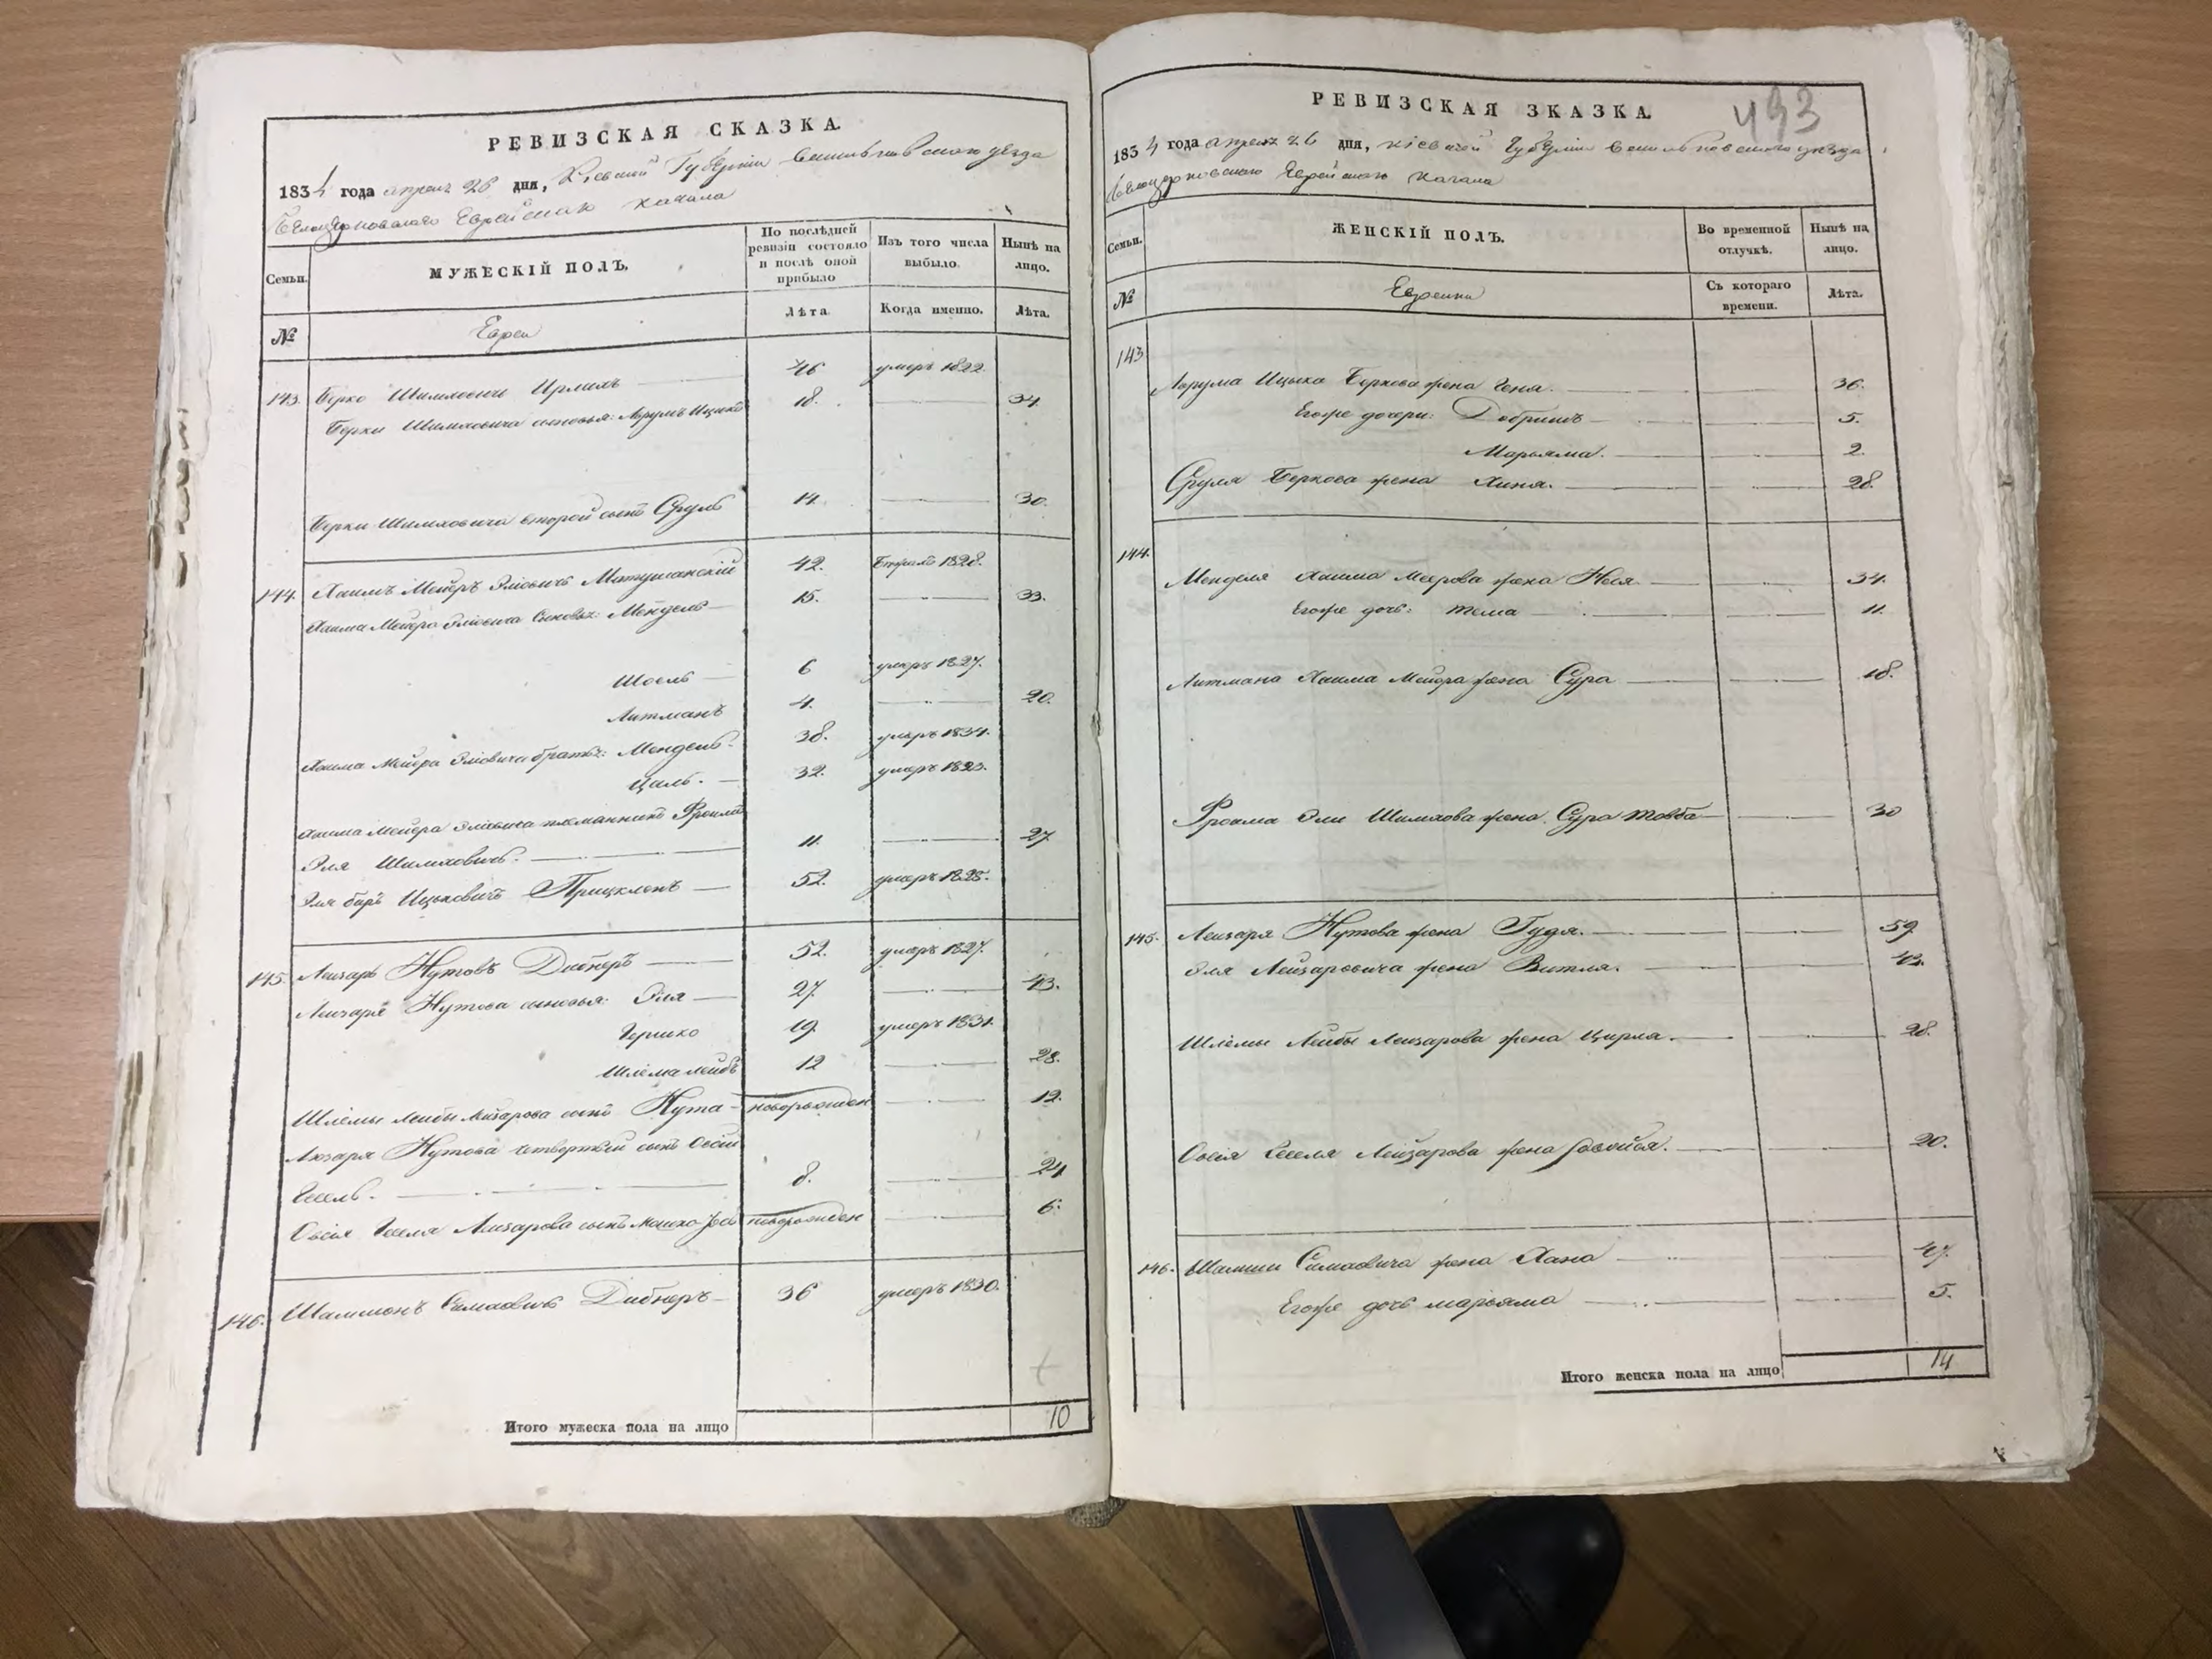 РЕВИЗСКАЯ СКАЗКА.
1834 года апреля 26 дня, Кіевской Губерніи Васильковскаго уезда
Белоцерковскаго Еврейскаго Кагала
Семьи.
МУЖЕСКІЙ ПОЛЪ.
По послѣдней ревизіи состояло и послѣ оной прибыло
Изъ того числа выбыло.
Нынѣ на лицо.
№
Евреи
Лѣта.
Когда именно.
Лѣта.
143. Берко Шимховичъ 46 умеръ 1822
Берки Шимховича сыновья: Аврумъ Ицыко 18. 34.
Берки Шимховича второй сынъ Сруль 14. 30.
144. Хаимъ Мейеръ Эліовичъ 42. 1828.
Хаима Мейера Эліовича Сыновья: Мендель 15. 33.
Шоель 6 умеръ 1827.
Литманъ 4. 20.
Хаима Мейера Эліовича братья: Мендель 38. умеръ 1834.
Цаль. 32. умеръ 1823.
Хаима Мейера Эліовича племянникъ Фроимъ
Эля Шимховичъ. 11. 27
Эля Ицковичъ 52. умеръ 1825.
145. Лейзаръ Нутовъ Дибнеръ 52. умеръ 1827.
Лейзаря Нутова сыновья: Эля 27. 43.
Гершко 19. умеръ 1831.
Шлема лейбъ 12 28.
Шлемы лейбы Лейзарова сынъ Нута новорожден 12.
Лейзаря Нутова четвертый сынъ Овсій
8. 24
Овсія Лейзарова сынъ Мошко новорожден 6.
146. Шамшонъ Дибнеръ 36 умеръ 1830.
Итого мужеска пола на лицо 10
РЕВИЗСКАЯ ЗКАЗКА.
493
1834 года апреля 26 дня, Кіевской Губерніи Васильковскаго уезда
Белоцерковскаго Еврейскаго Кагала
Семьи.
ЖЕНСКІЙ ПОЛЪ.
Во временной отлучкѣ.
Нынѣ на лицо.
№
Еврейки
Съ котораго времени.
Лѣта.
143
Аврума Ицыка Беркова жена Гена. 36.
Егоже дочери: Добришъ 5.
Марьяма. 2.
Сруля Беркова жена Хиня. 28.
144.
Менделя Хаима Меерова жена Нося 34.
Егоже дочь: Тема 11.
Литмана Хаима Мейера жена Сура 18.
Фроима Эли Шимхова жена Сура Товба 30
145. Лейзаря Нутова жена Гудя. 59
Эля Лейзаровича жена Витля. 42.
Шлемы Лейбы Лейзарова жена Цирля. 28.
Овсія Лейзарова жена 20.
146. жена Хана 47.
Егоже дочь марьяма 5.
Итого женска пола на лицо 14